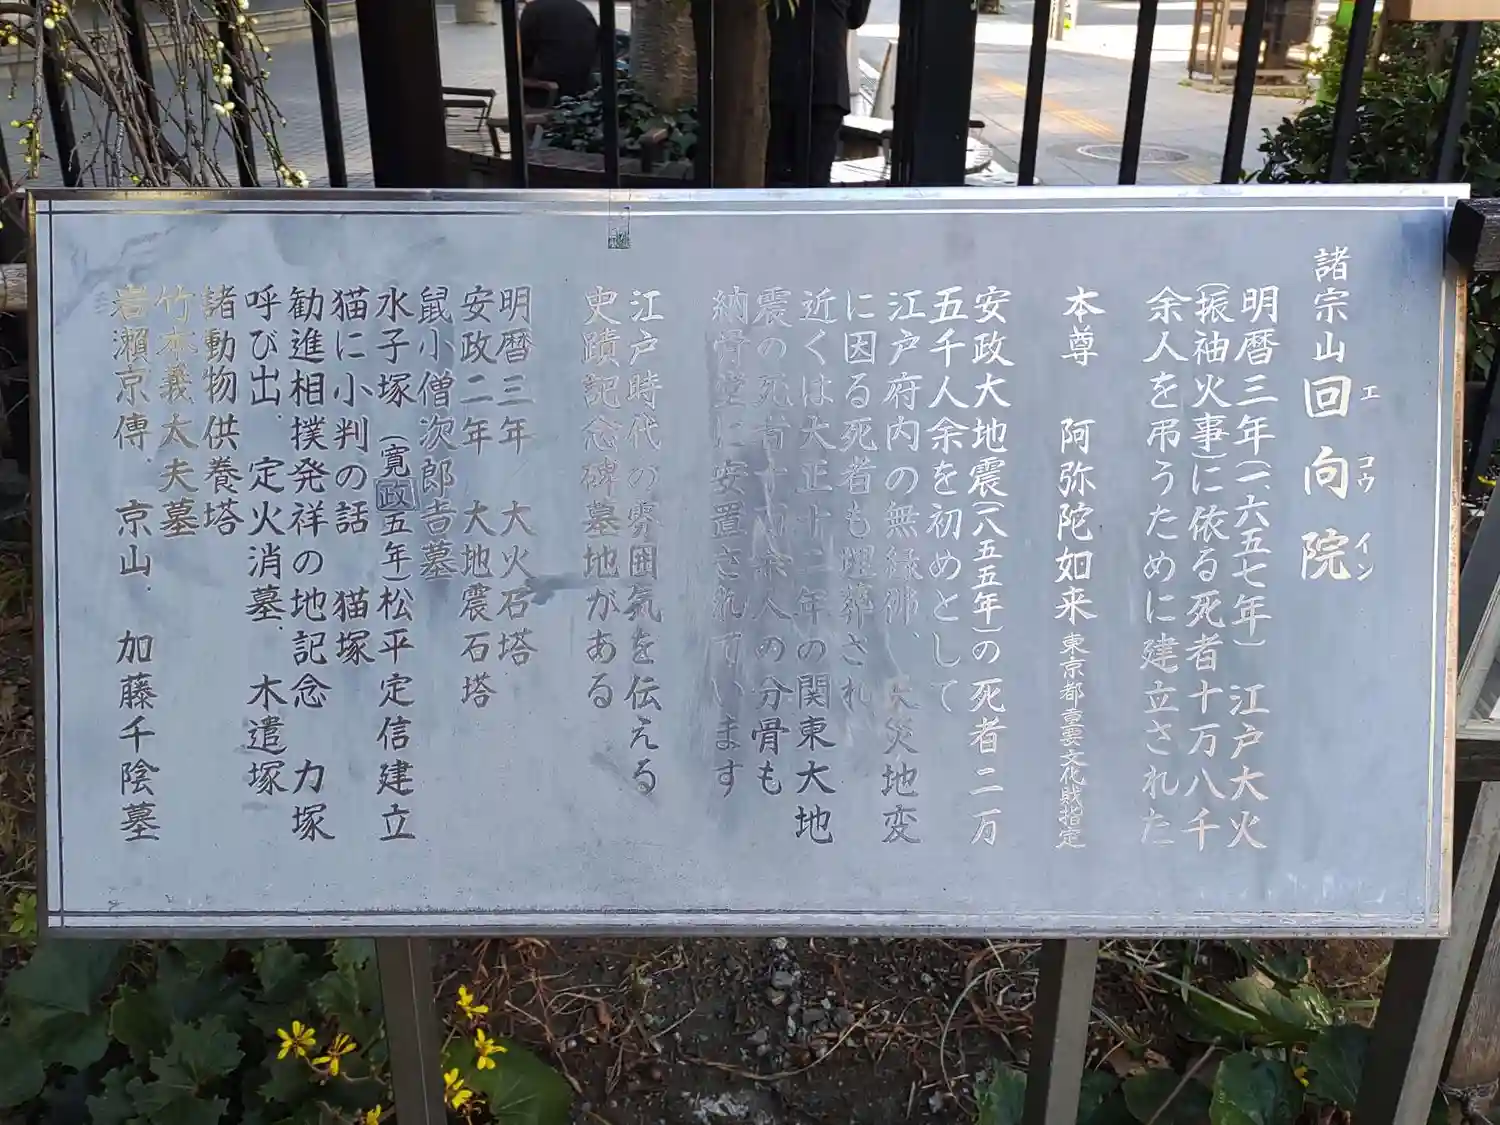 諸宗山回向院
エコウイン
明暦三年(一六五七年) 江戸大火
(振袖火事)に依る死者十万八千
余人を弔うために建立された
本尊 阿弥陀如来 東京都重要文化財指定
安政大地震(一八五五年)の死者二万
五千人余を初めとして
江戸府内の無縁佛、天災地変
に因る死者も埋葬され
近くは大正十二年の関東大地
震の死者十万余人の分骨も
納骨堂に安置されています
江戸時代の雰囲気を伝える
史蹟記念碑墓地がある
明暦三年 大火石塔
安政二年 大地震石塔
鼠小僧次郎吉墓
水子塚(寛政五年)松平定信建立
猫に小判の話 猫塚
勧進相撲発祥の地記念 力塚
呼び出、定火消墓、木遣塚
諸動物供養塔
竹本義太夫墓
岩瀬京傳、京山、加藤千陰墓